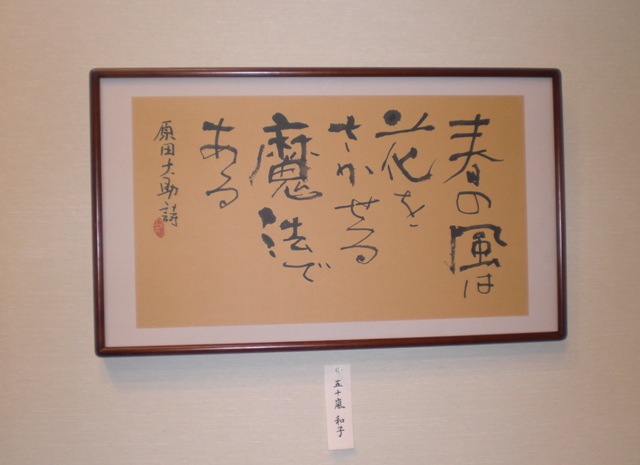 春の風は
花を
さかせる
魔法で
ある
原田大助詩
五十嵐和子